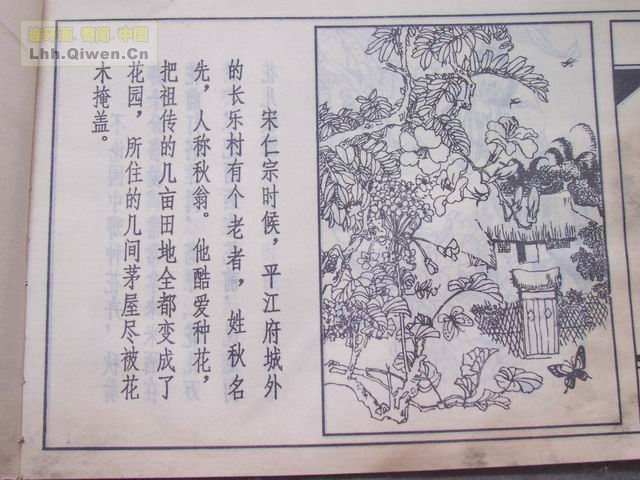 连环画.者阅.中国
Lhh.Qiwen.Cn
宋仁宗时候，平江府城外
的长乐村有个老者，姓秋名
先，人称秋翁。他酷爱种花，
把祖传的几亩田地全都变成了
花园，所住的几间茅屋尽被花
木掩盖。